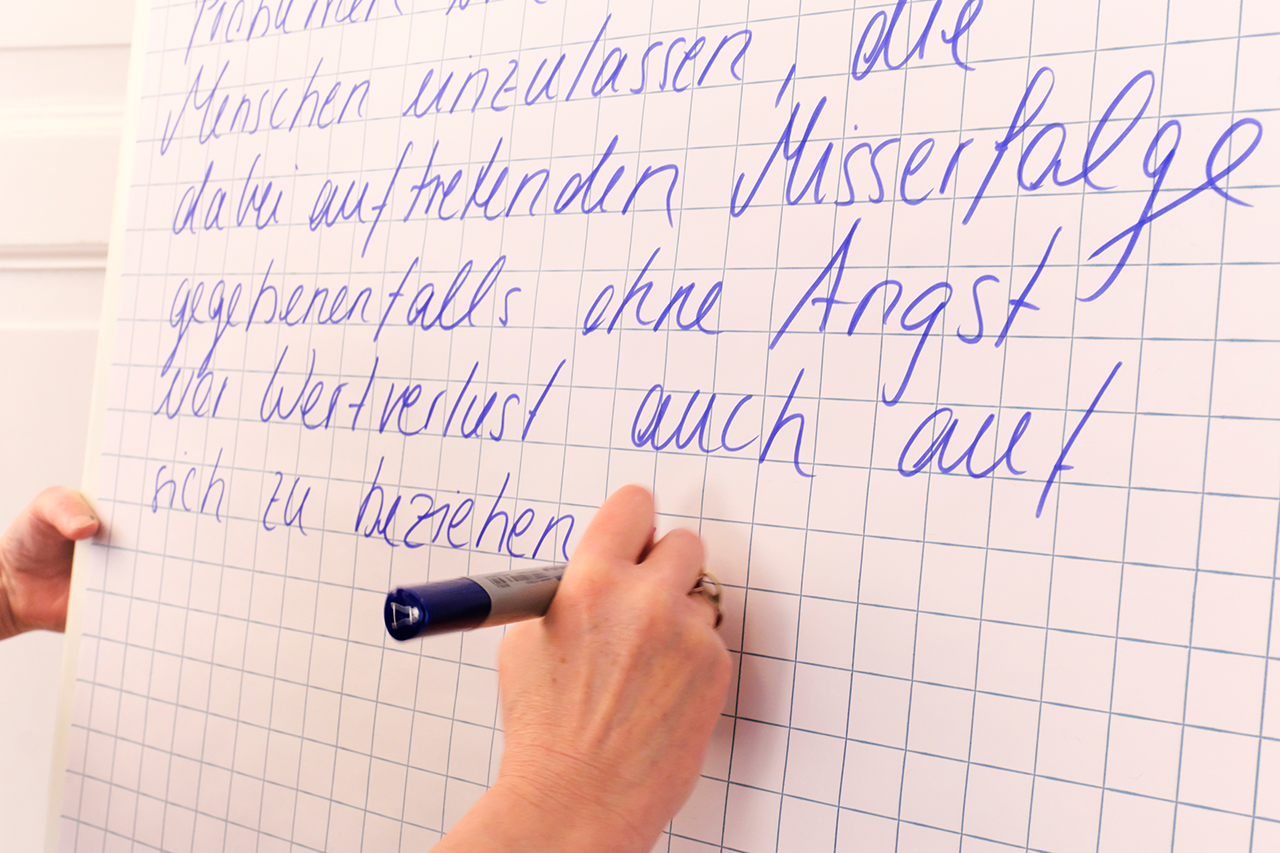 Menschen einzulassen, die
dabei auftretenden Misserfolge
gegebenenfalls ohne Angst
vor Wertverlust auch auf
sich zu beziehen